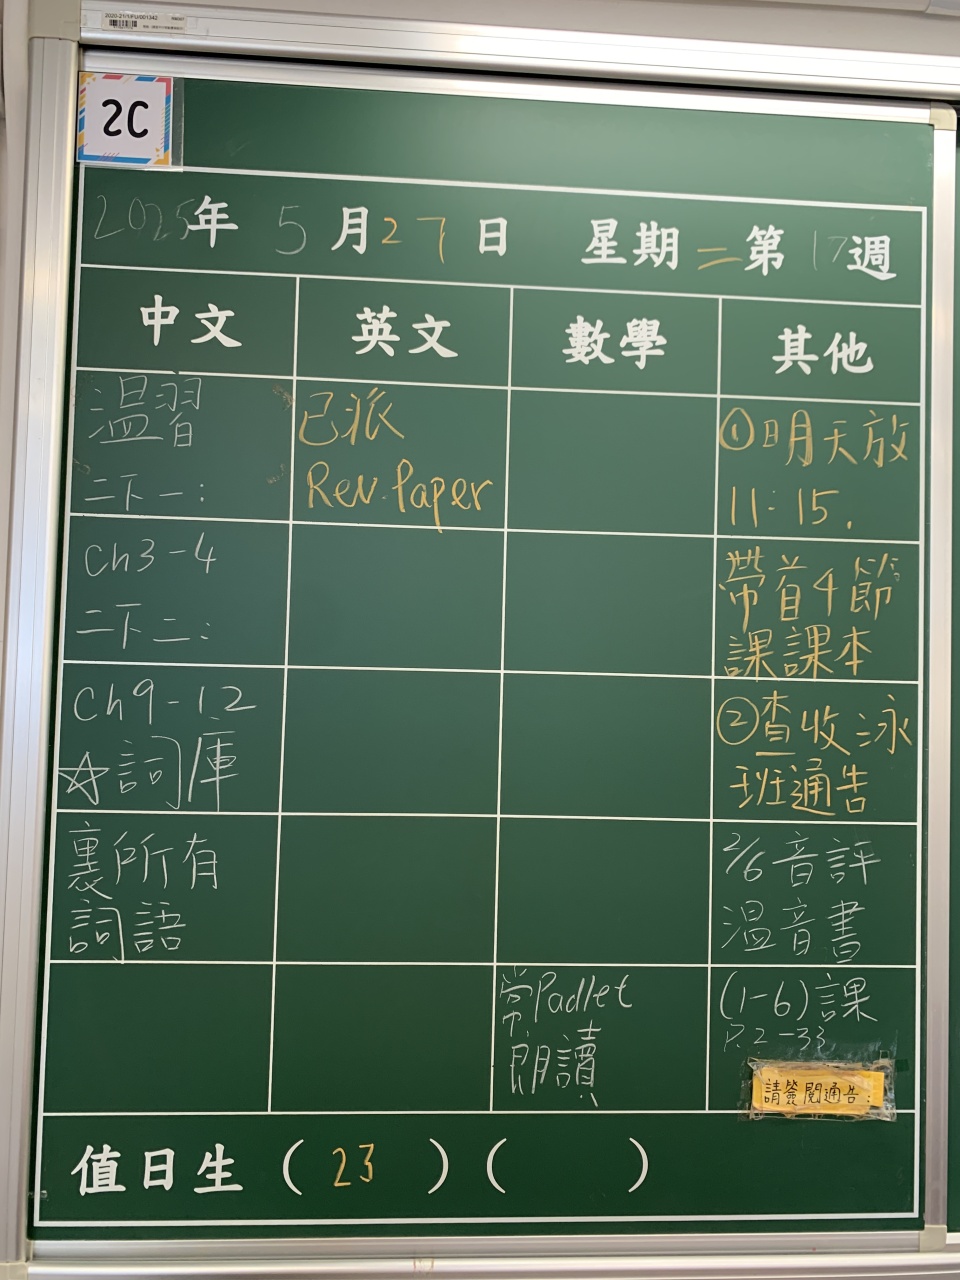 2020-21/1/FU/001342
2C
2025年 5 月 27 日 星期二 第 17 週
中文 英文 數學 其他
温習
二下一:
Ch3-4
二下二:
Ch9-12
☆詞庫
裏所有
詞語
已派
Rev. Paper
常Padlet
朗讀
①明天放
11:15.
帶首4節
課課本
②查收泳
班通告
2/6音評
温音書
(1-6)課
P.2-33
請簽閱通告:
值日生 ( 23 ) ( )